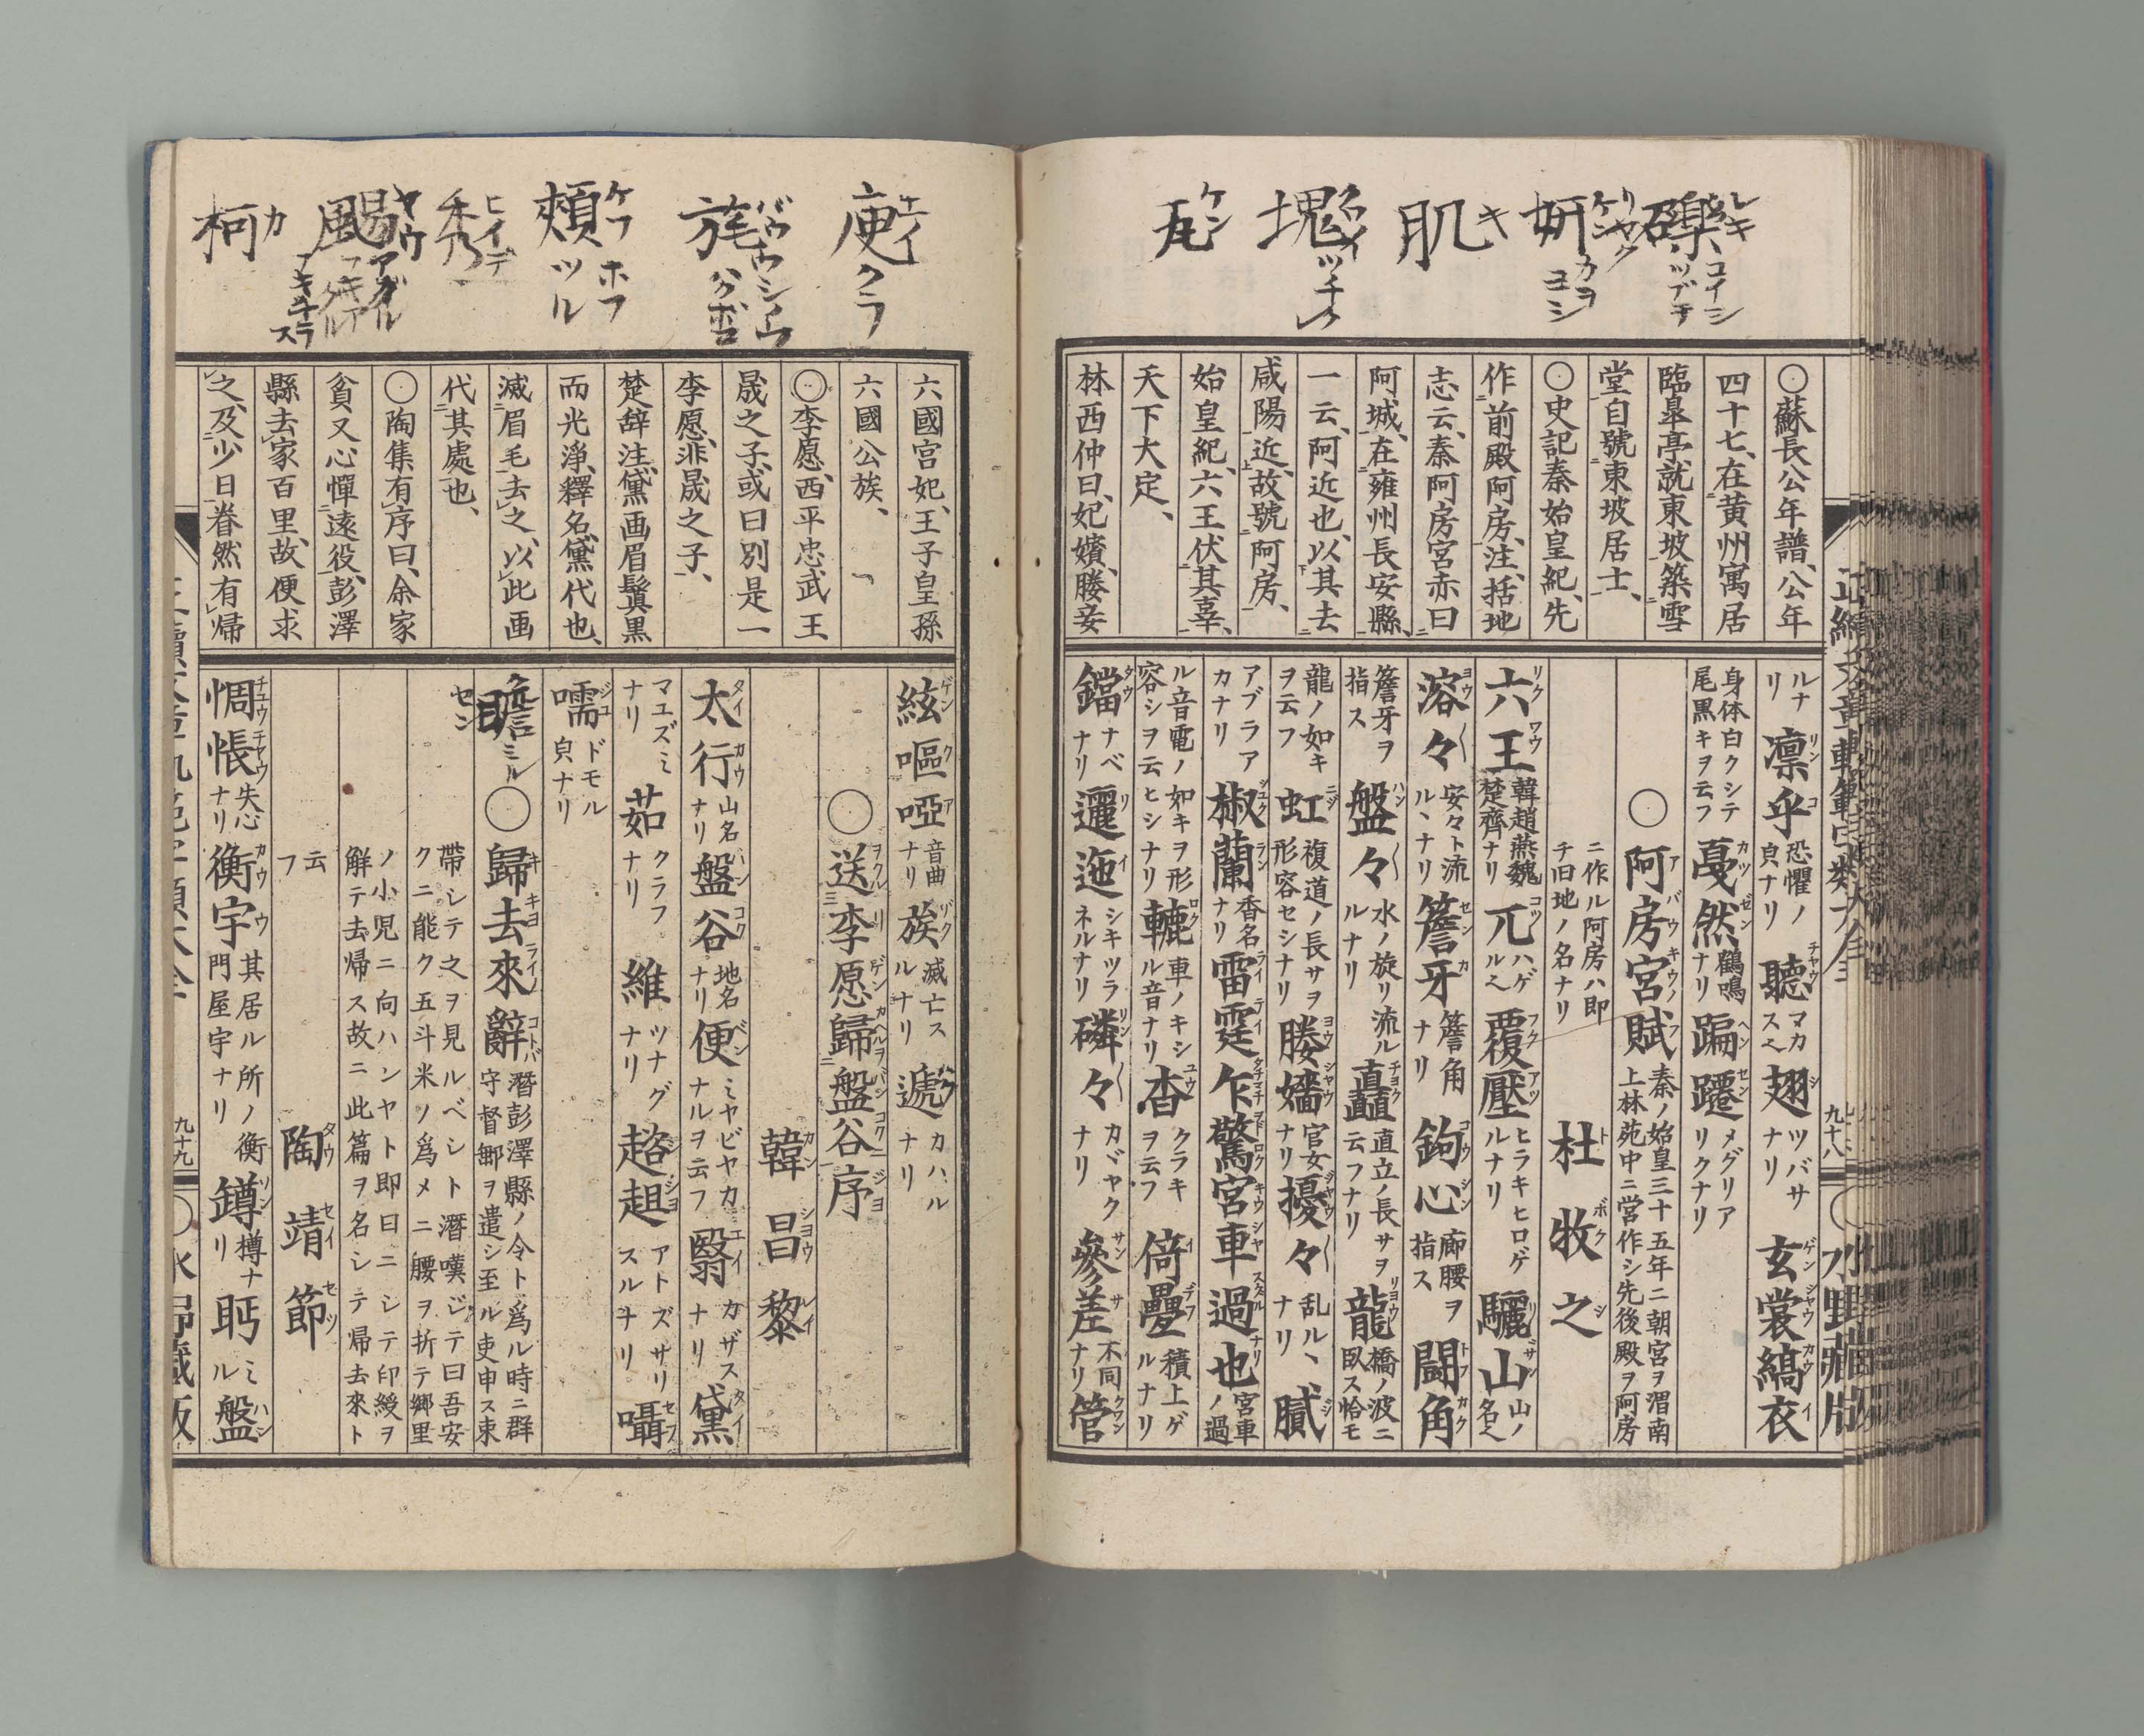 礫 レキ コイシ ツブテ
妍 ケン カヲヨシ
肌 キ
塊 クワイ ツチクレ
瓦
〇蘇長公年譜、公年
四十七、在黄州寓居
臨皐亭就東坡築雪
堂自號東坡居士、
〇史記秦始皇紀、先
作前殿阿房、注、括地
志云、秦阿房宮亦曰
阿城、在雍州長安縣、
一云、阿近也、以其去
咸陽近、故號阿房、
始皇紀、六王伏其辜、
天下大定、
林西仲曰、妃嬪媵妾
ルナリ 凛乎 恐懼ノ皃ナリ 聽 マカスヘ 翅 ツバサナリ 玄裳縞衣
身体白クシテ尾黒キヲ云フ 戞然 鶴鳴ナリ 蹁躚 メグリアリクナリ
〇阿房宮賦 秦ノ始皇三十五年ニ朝宮ヲ渭南上林苑中ニ営作シ先後殿ヲ阿房
ニ作ル阿房ハ即チ旧地ノ名ナリ 杜牧之
六王 韓趙燕魏楚齊ナリ 兀 ハゲルヘ 覆壓 ヒラキヒロゲルナリ 驪山 山ノ名ヘ
溶々 安々ト流ル、ナリ 簷牙 簷角ナリ 鉤心 廊腰ヲ指ス 闘角
簷牙ヲ指ス 盤々 水ノ旋リ流ルルナリ 矗 直立ノ長サヲ云フナリ 龍 橋ノ波ニ臥ス恰モ
龍ノ如キヲ云フ 虹 複道ノ長サヲ形容セシナリ 媵嬙 官女ナリ 擾々 乱ル、ナリ 膩
アブラアカナリ 椒蘭 香名ナリ 雷霆乍驚宮車過也 宮車ノ過
ル音電ノ如キヲ形容シヲ云ヒシナリ 轆 車ノキシル音ナリ 杳 クラキヲ云フ 倚疊 積上ゲルナリ
鐺 ナベナリ 邐迤 シキツラネルナリ 磷々 カヾヤクナリ 參差 不同ナリ 管
九十八
庾 クラ
旄
頰 ケフ ホフ ツル
秀 ヒイデ
颺 ヤウ アガル
柯 カ
六國宮妃、王子皇孫
六國公族、
〇李愿、西平忠武王
晟之子、或曰別是一
李愿、非晟之子、
楚辞注、黛画眉鬒黒
而光淨、釋名、黛代也、
滅眉毛去之、以此画
代其處也、
〇陶集有序曰、余家
貧又心憚遠役、彭澤
縣去家百里、故便求
之、及少日眷然有歸
絃嘔啞 音曲ナリ 族 滅亡スルナリ 遞 カハルナリ
〇送李愿歸盤谷序
韓昌黎
太行 山名ナリ 盤谷 地名ナリ 便 ミヤビヤカナルヲ云フ 翳 カザスナリ 黛
マエズミナリ 茹 クラフナリ 維 ツナグナリ 趦趄 アトズサリスルナリ 囁
嚅 ドモル皃ナリ
瞻 ミル 〇歸去來辭 潛彭澤縣ノ令ト為ル時ニ群守督郵ヲ遣シ至ル吏申ス東
帶シテ之ヲ見ルベシト潛嘆ジテ曰吾安クニ能ク五斗米ノ為メニ腰ヲ折テ郷里
ノ小児ニ向ハンヤト即日ニシテ印綬ヲ解テ去帰ス故ニ此篇ヲ名シテ帰去來ト
云フ 陶靖節
惆悵 失心ナリ 衡宇 其居ル所ノ衡門屋宇ナリ 罇 樽ナリ 眄 ミル 盤
九十九